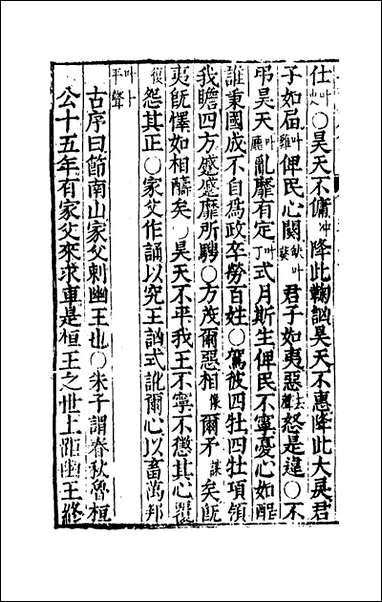 仕○昊天不傭冲降此鞠訩昊天不惠降此大戾君
子如屆叶雞俾民心闋君子如夷惡去聲怒是違○不
弔昊天叶廳亂靡有定叶丁式月斯生俾民不寧憂心如酲
誰秉國成不自為政卒勞百姓○駕彼四牡四牡項領
我瞻四方蹙蹙靡所騁○方茂爾惡相像爾矛謀矣既
夷既懌如相醻矣○昊天不平我王不寧不懲其心覆
復怨其正○家父作誦以究王訩式訛爾心以畜萬邦
平聲
古序曰節南山家父刺幽王也○朱子謂春秋魯桓
公十五年有家父來求車是桓王之世上距幽王終